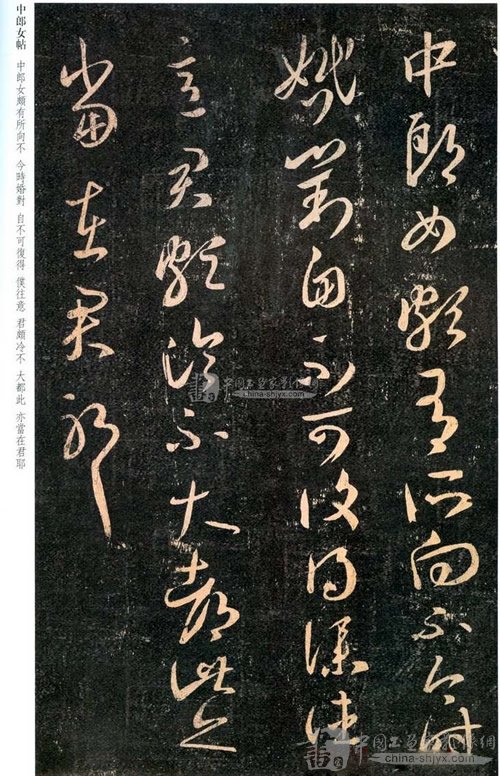 中郎女帖 中郎女頗有所向不 今時婚對 自不可復得 僕往意 君頗冷不 大都此 亦當在君耶
中郎女頗有所向不今時
婚對自不可復得僕往
意君頗冷不大都此亦
當在君耶
書
中國工藝
china-shjyx.com
書
網
china-shjyx.com